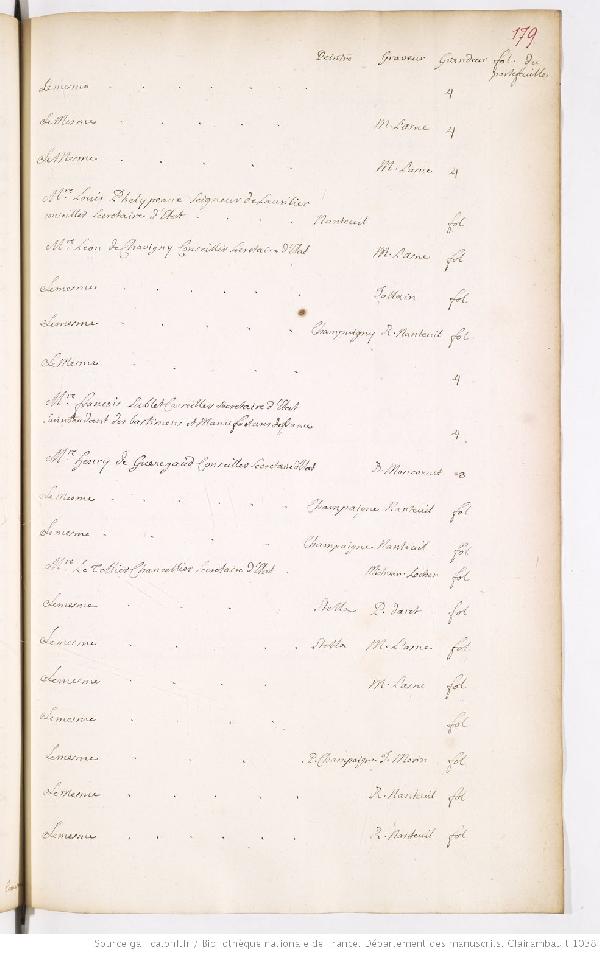 179
Peintre Graveur Grandeur fol. du
portefeuille
Lemesme 4
Le Mesme M. Lasne 4
Le Mesme M. Lasne 4
Mre. Louis Phelypeaux Seigneur de La
conseiller Secretaire d'Etat Nanteuil fol
Mre. Leon de Chavigny Conseiller Secretaire d'Etat M. Lasne fol
Lemesme fol
Lemesme Champaigny R. Nanteuil fol
Le Mesme 4
Mre. francois Sublet Conseiller Secretaire d'Etat
Surintendant des bastimens et Manufactures de france 4
Mre. Henry de Guenegaud Conseiller Secretaire d'Etat B. Moncornet 8
Le Mesme Champaigne Nanteuil fol
Lemesme Champaigne Nanteuil fol
Mre. Le Tellier Chancellier Secretaire d'Etat fol
Lemesme Stella P. daret fol
Lemesme Stella M. Lasne fol
Lemesme M. Lasne fol
Lemesme fol
Lemesme P. Champaigne J. Morin fol
Lemesme R. Nanteuil fol
Lemesme R. Nanteuil fol
Source gallica.bnf.fr / Bibliothèque nationale de France. Département des manuscrits. Clairambault 1038